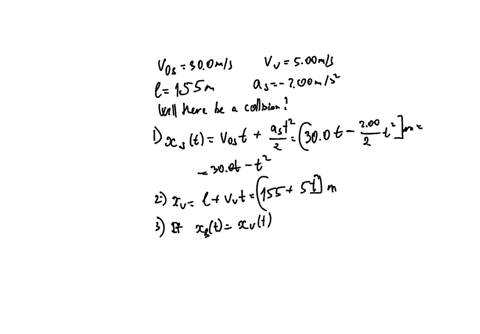 V0s = 30.0 m/s Vv = 5.00 m/s
l = 155 m as = -2.00 m/s²
Will there be a collision?
1) xs(t) = V0s t + as t²/2 = (30.0 t - 2.00/2 t²] m =
= 30.0t - t²
2) xv = l + Vv t = (155 + 5t] m
3) If xs(t) = xv(t)